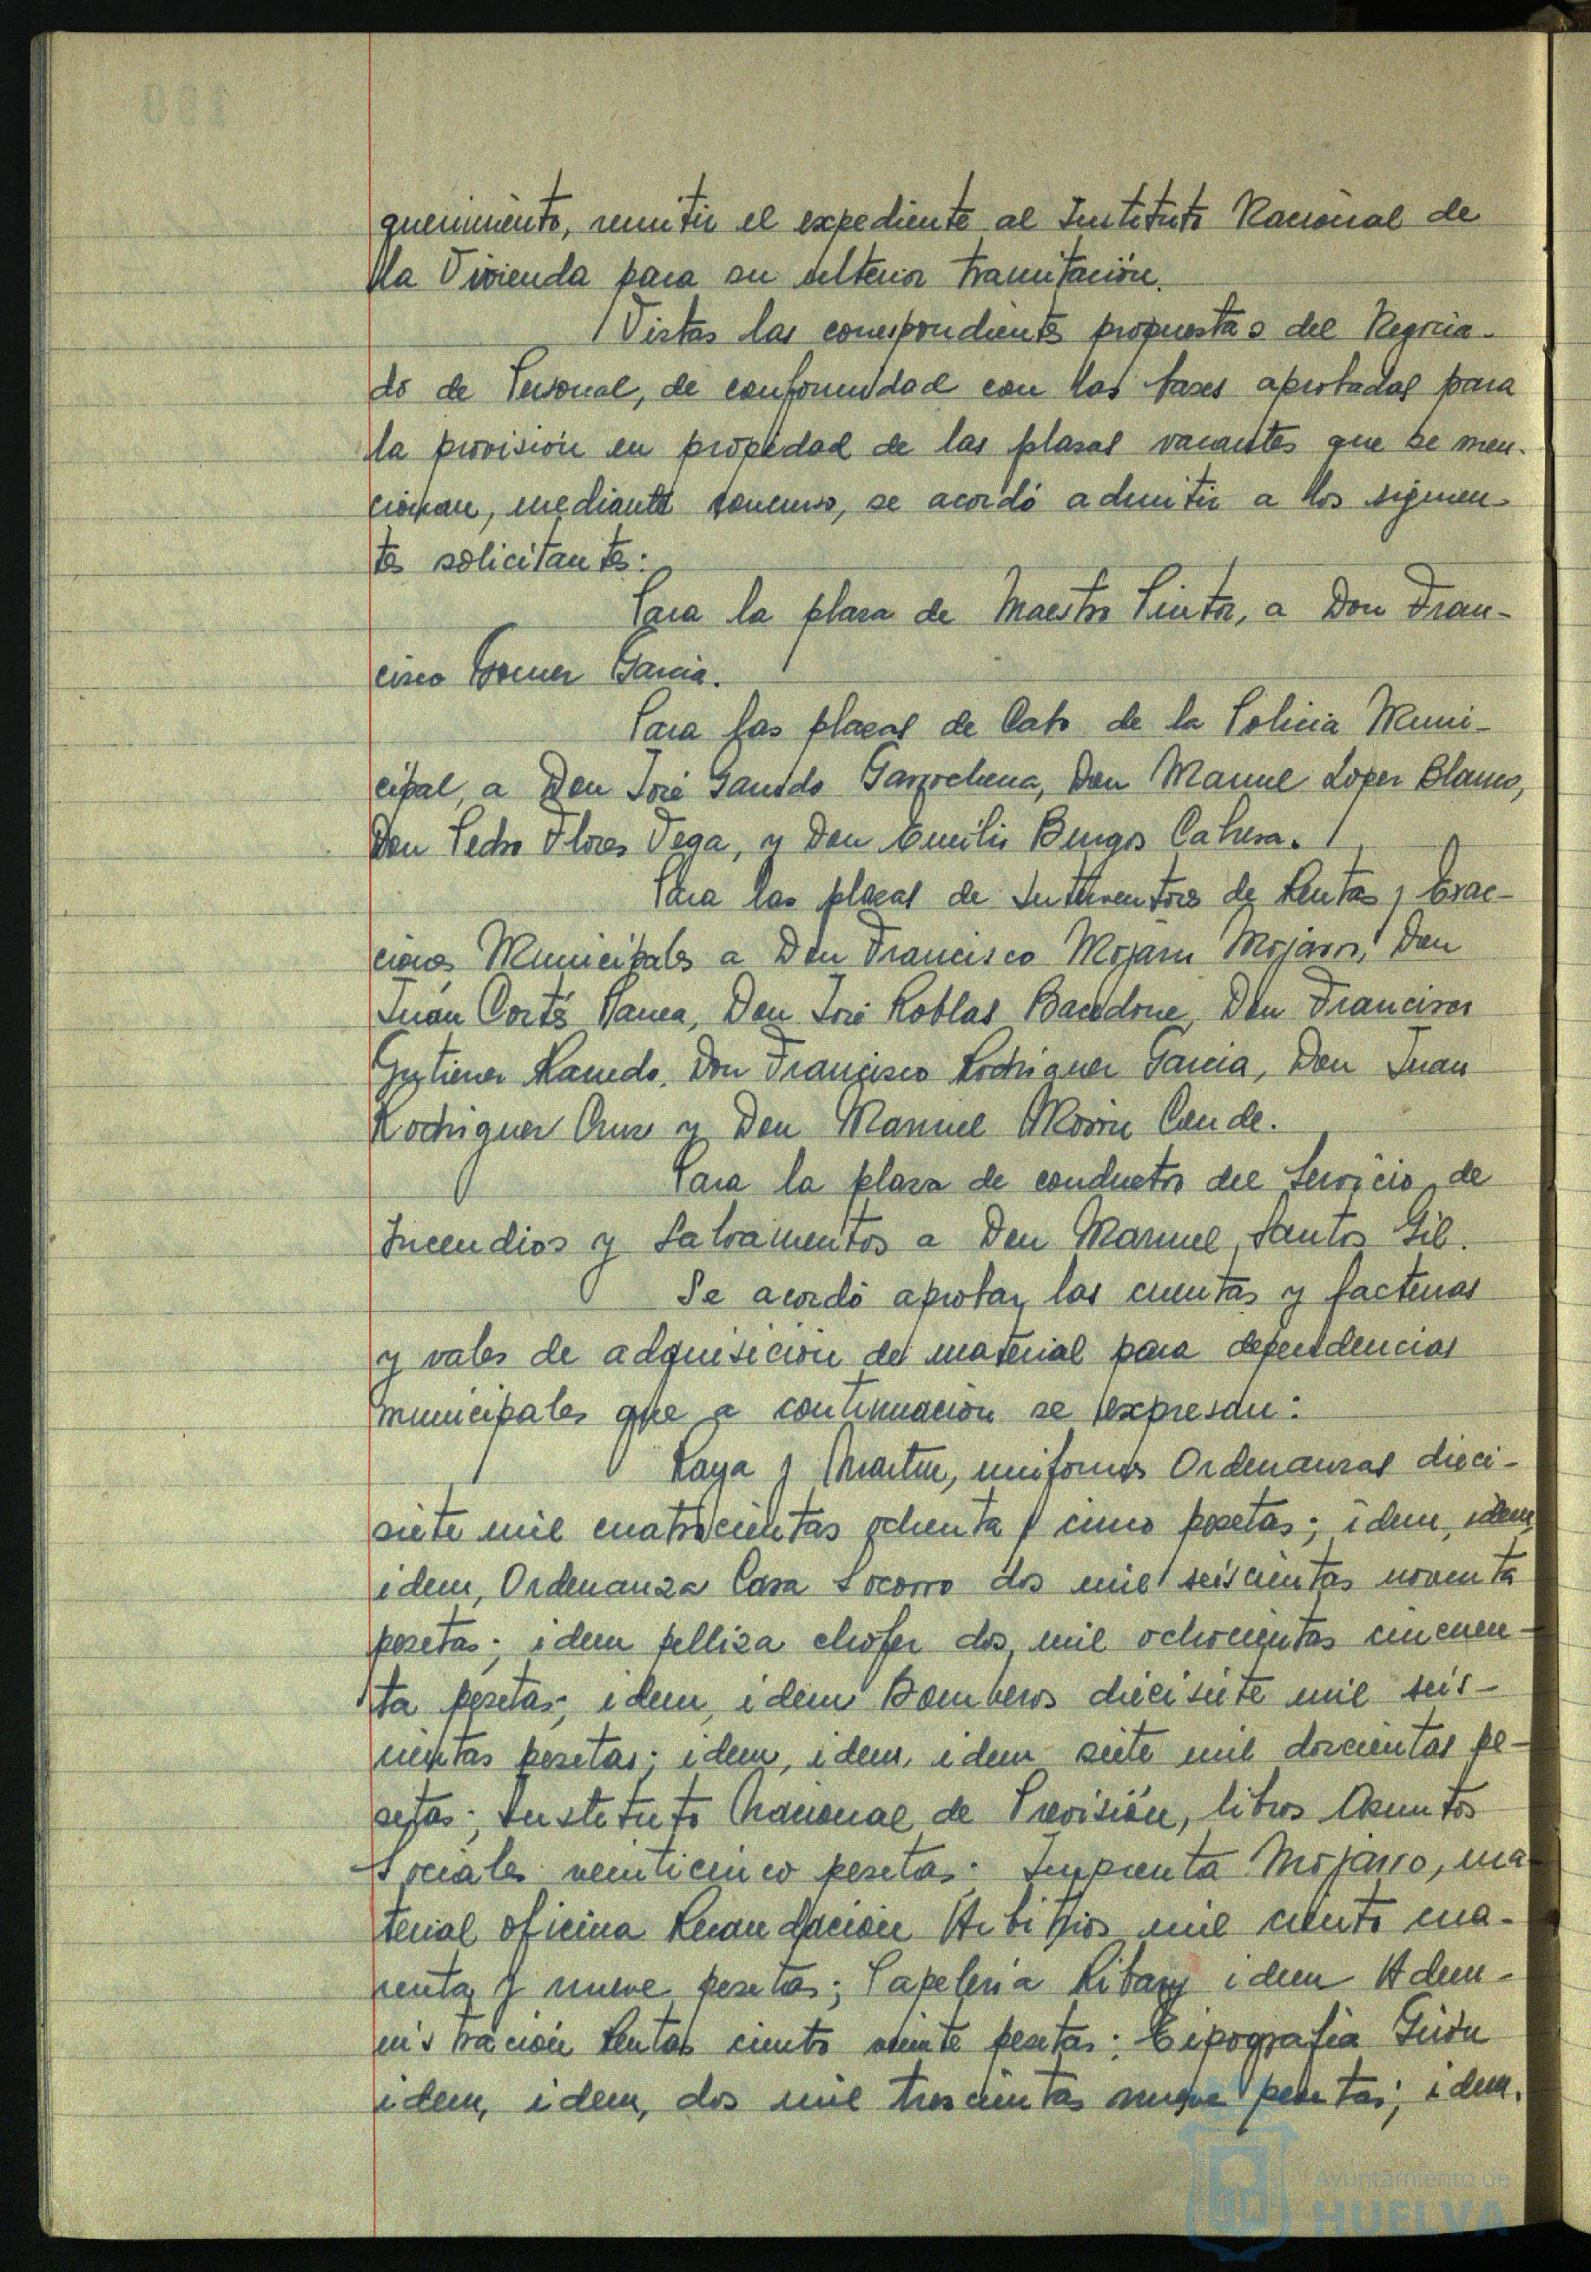 querimiento, remitir el expediente al Instituto Nacional de
la Vivienda para su ulterior tramitación.
Vistas las correspondientes propuestas del Negocia-
do de Personal, de conformidad con las bases aprobadas para
la provisión en propiedad de las plazas vacantes que se men-
cionan, mediante concurso, se acordó admitir a los siguien-
tes solicitantes:
Para la plaza de Maestro Pintor, a Don Fran-
cisco Gomez Garcia.
Para las plazas de Cabo de la Policia Muni-
cipal, a Don José Garrido Garrochena, Don Manuel Lopez Blanco,
Don Pedro Flores Vega, y Don Emilio Burgos Cabesa.
Para las plazas de Interventores de Rentas y Exac-
ciones Municipales a Don Francisco Mojarro Mojarro, Don
Juan Cortés, Don José Roblas, Don Francisco
Gutierrez, Don Francisco Rodriguez Garcia, Don Juan
Rodriguez Cruz y Don Manuel Morón Conde.
Para la plaza de conductor del Servicio de
Incendios y Salvamentos a Don Manuel Santos Gil.
Se acordó aprobar las cuentas y facturas
y vales de adquisición de material para dependencias
municipales que a continuación se expresan:
Raya y Martin, uniformes Ordenanzas dieci-
siete mil cuatrocientas ochenta y cinco pesetas; idem, idem
idem, Ordenanza Casa Socorro dos mil seiscientas noventa
pesetas; idem pelliza chofer dos mil ochocientas cincuen-
ta pesetas; idem, idem Bomberos diecisiete mil seis-
cientas pesetas; idem, idem, idem siete mil doscientas pe-
setas; Instituto Nacional de Previsión, libros Asuntos
Sociales veinticinco pesetas; Imprenta Mojarro, ma-
terial oficina Recaudación Arbitrios mil ciento cua-
renta y nueve pesetas; Papeleria idem Admi-
nistración Rentas ciento veinte pesetas; Tipografia Girón
idem, idem, dos mil trescientas nueve pesetas; idem.
Ayuntamiento de
HUELVA